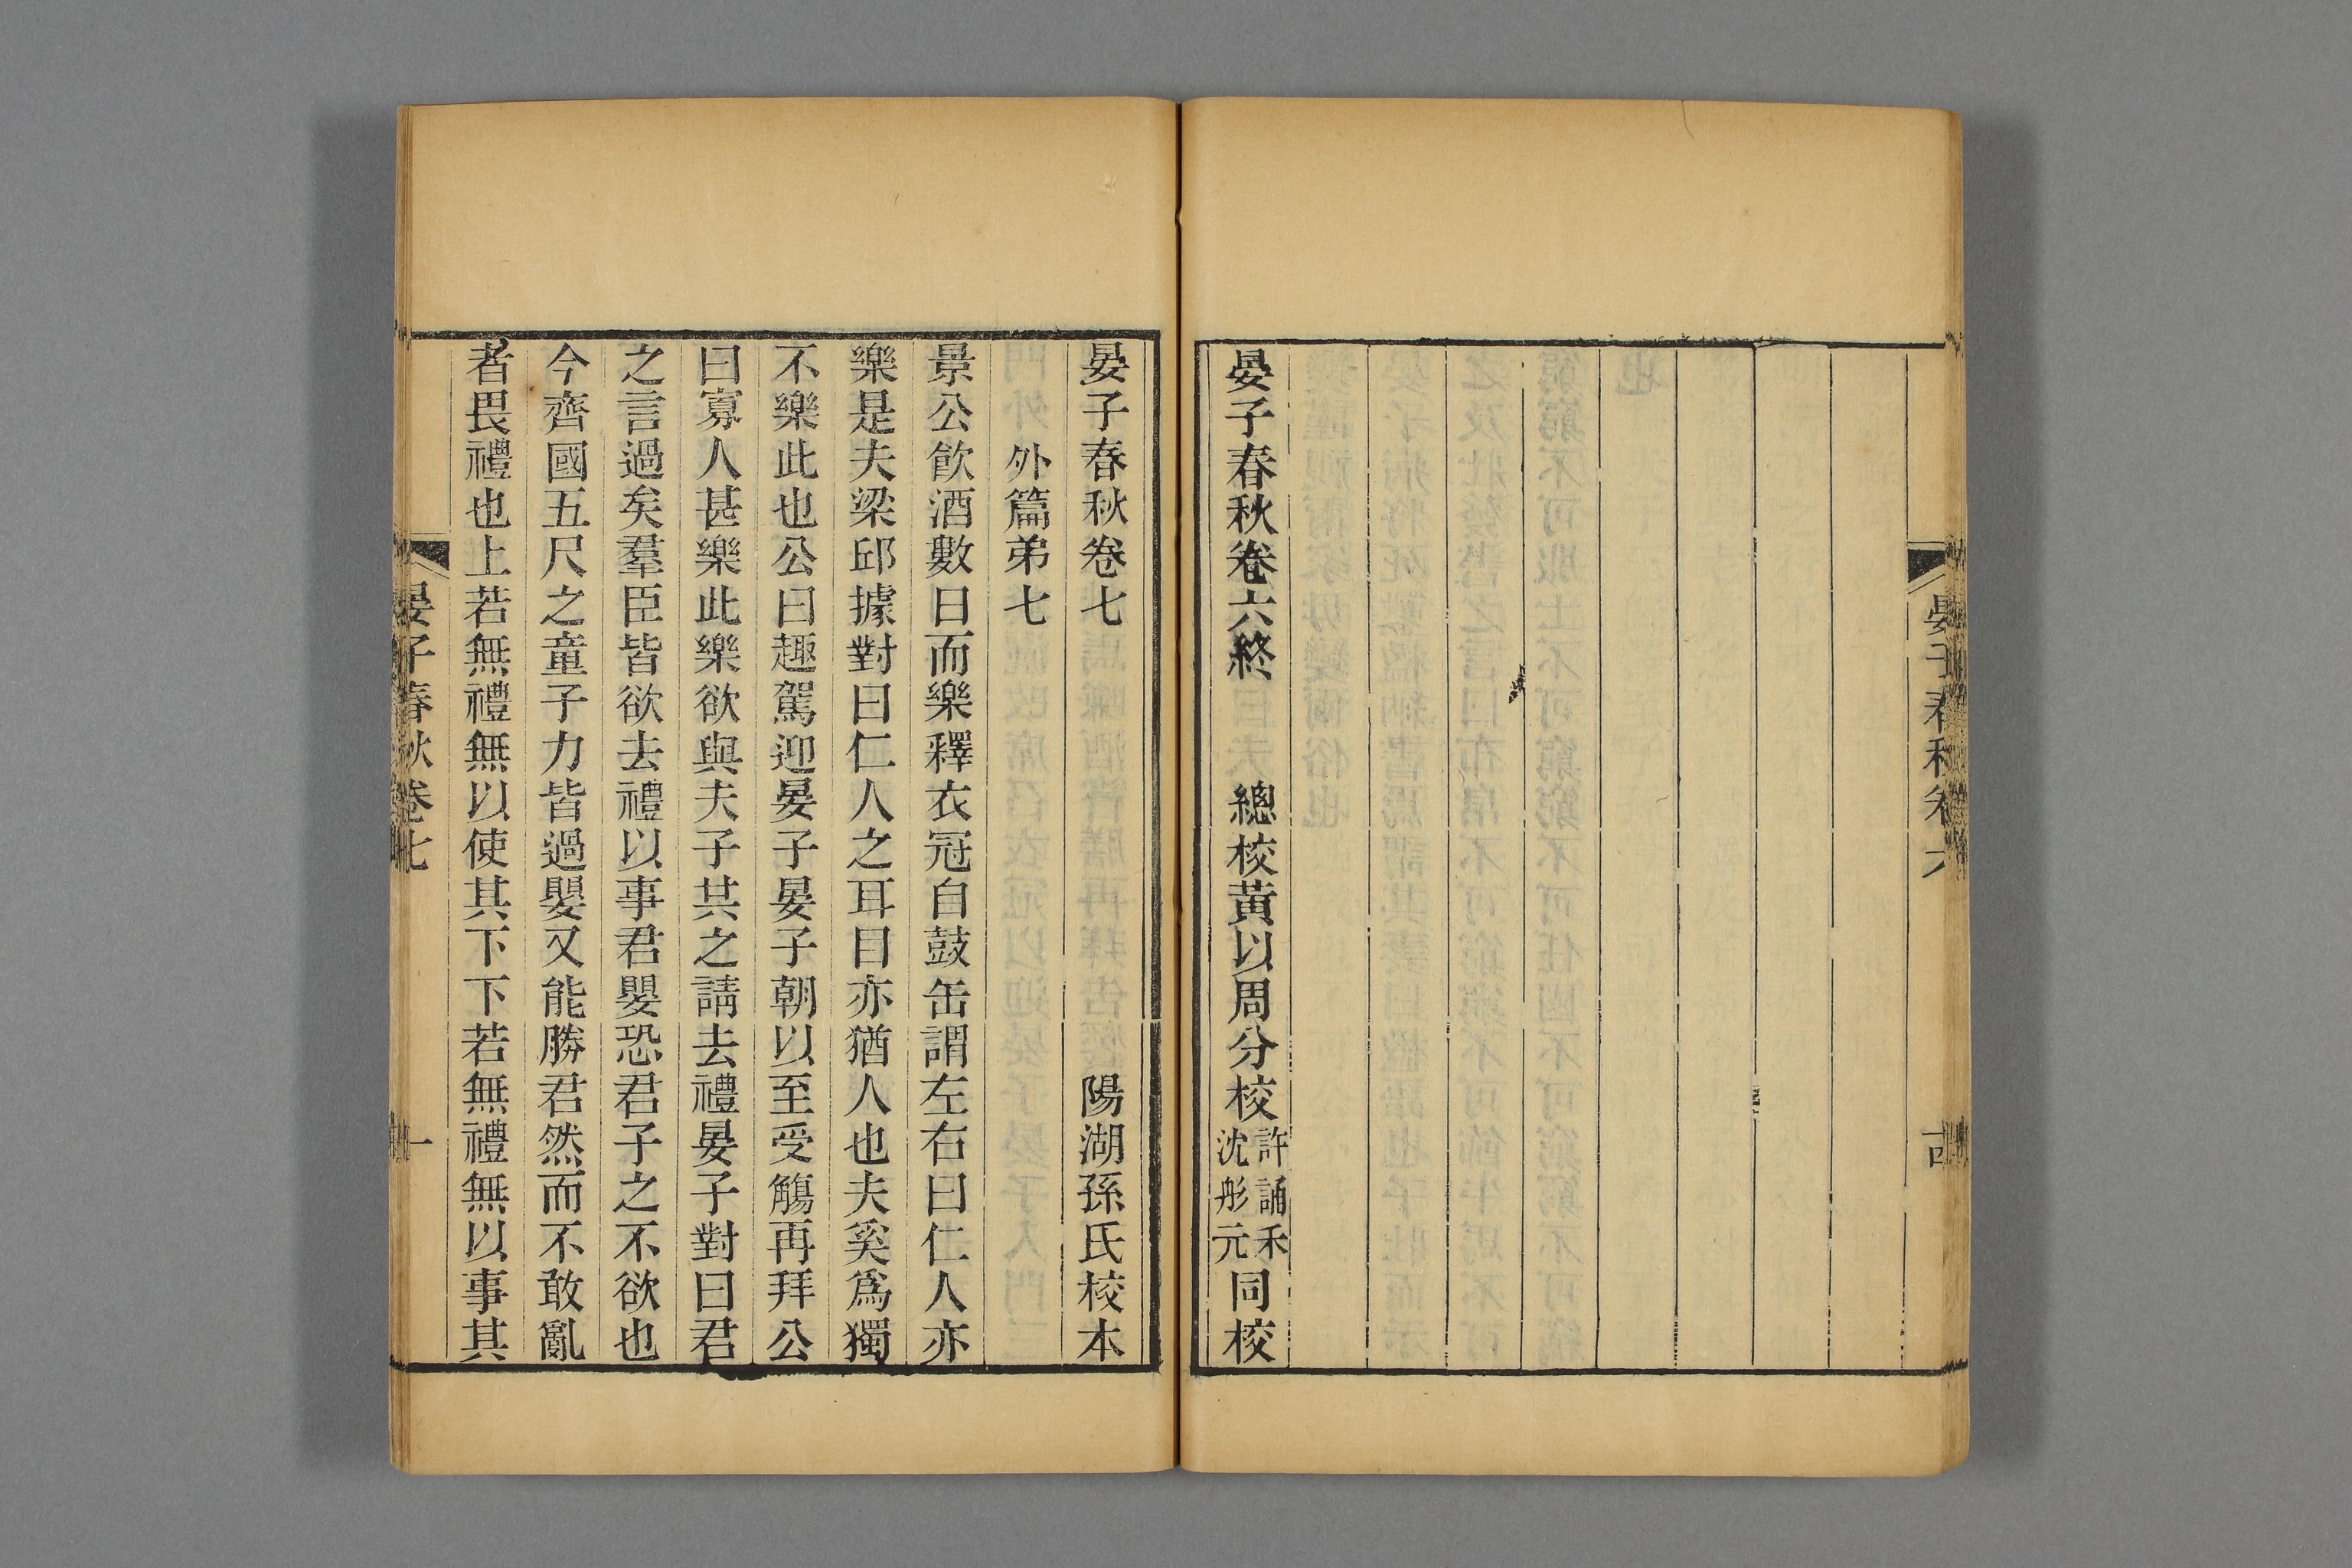 晏子春秋卷六
晏子春秋卷六終 總校黃以周分校許誦禾沈彤元同校
晏子春秋卷七 陽湖孫氏校本
外篇弟七
景公飲酒數日而樂釋衣冠自鼓缶謂左右曰仁人亦
樂是夫梁邱據對曰仁人之耳目亦猶人也夫奚爲獨
不樂此也公曰趣駕迎晏子晏子朝以至受觴再拜公
曰寡人甚樂此樂欲與夫子共之請去禮晏子對曰君
之言過矣羣臣皆欲去禮以事君嬰恐君子之不欲也
今齊國五尺之童子力皆過嬰又能勝君然而不敢亂
者畏禮也上若無禮無以使其下下若無禮無以事其
晏子春秋卷七 一